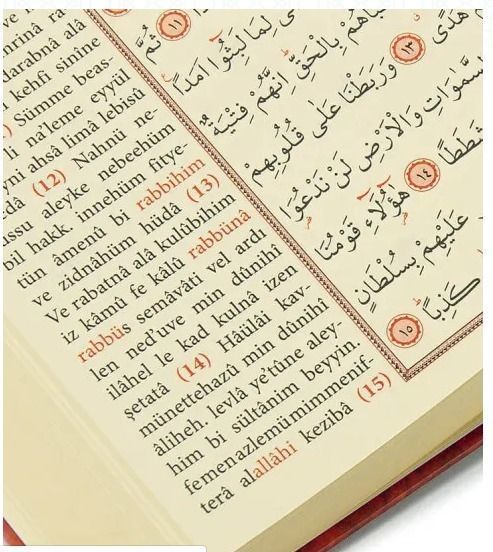 mrina ra-
darabnâ alâ
kehfi sinîne
Sümme beas-
li na'leme eyyül
yni ahsa limâ lebisû
(12) Nahnü ne-
ussu aleyke nebeehüm
bil hakk, innehüm fitye-
tün âmenû bi rabbihim
ve zidnâhüm hüdâ (13)
Ve rabatnâ alâ kulûbihim
iz kâmû fe kâlû rabbünâ
rabbüs semâvâti vel ardı
len ned'uve min dûnihî
ilâhel le kad kulnâ izen
şetatâ (14) Hâülâi kav-
münettehazû min dûnihî
âliheh, levlâ ye'tûne aley-
him bi sültânim beyyin.
femenazlemümimmenif-
terâ alallâhi kezibâ (15)
لِمَا لَبِثُٓوا اَمَداًۚ ﴿١٢﴾
بِالْحَقِّۜ اِنَّهُمْ فِتْيَةٌ
هُدًىۗ ﴿١٣﴾ وَرَبَطْنَا عَلٰى قُلُوبِهِمْ
السَّمٰوَاتِ وَالْاَرْضِ لَنْ نَدْعُوَ۬ا
شَطَطاً ﴿١٤﴾ هٰٓؤُ۬لَٓاءِ قَوْمُنَا
عَلَيْهِمْ بِسُلْطَانٍ
كَذِباًۜ ﴿١٥﴾